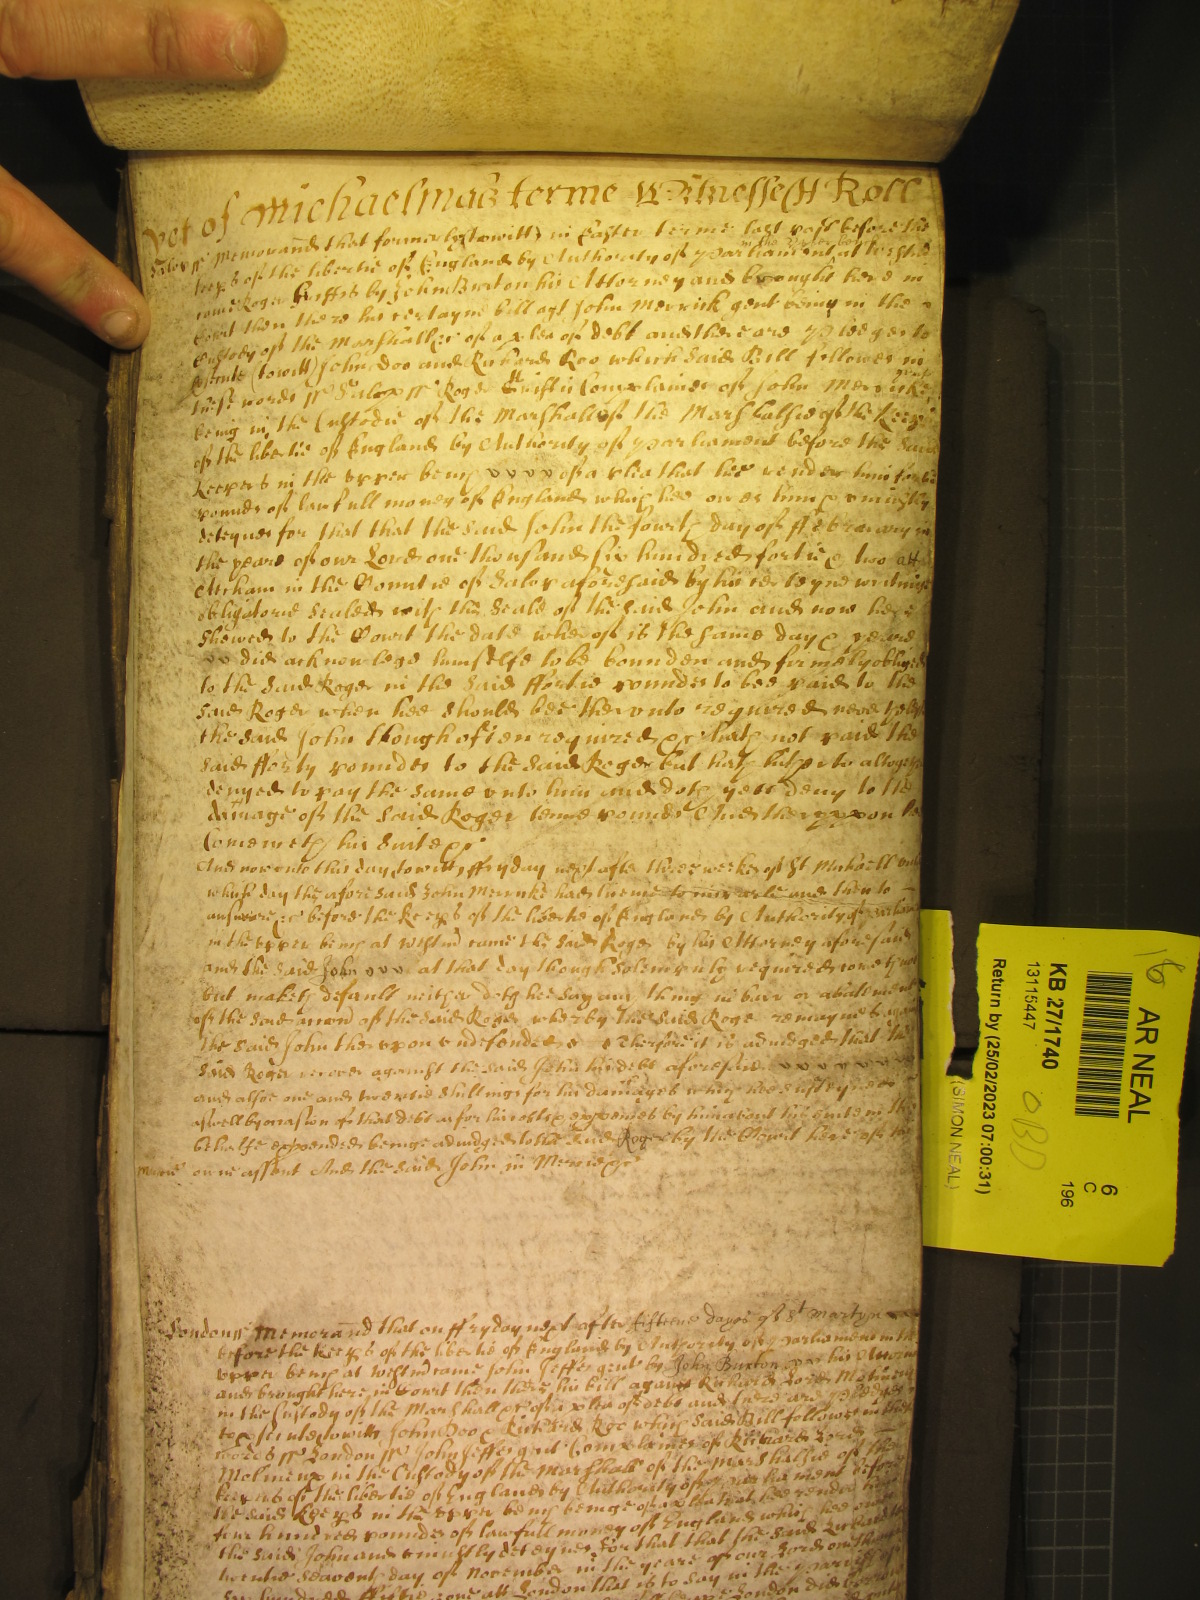 yet of Michaelmas terme Witnesseth Roll
Salop ss Memorand that formerly (to witt) in Easter terme last past before the
keeps of the libertie of England by Authority of parliament in the upper bench at Westm
came Roger Griffis by John Buxton his Attorney and brought here in
Court then there his certayne bill agt John Merrick gent being in the
Custody of the Marshall &c of a plea of debt and there are pledges to
prosecute (to witt) John Doo and Richard Roo which said Bill followes in
these words ss Salop ss Roger Griffis Complaines of John Merricke gent
being in the Custodie of the Marshall of the Marshalsie of the Keeps
of the libertie of England by Authority of parliament before the said
keepers in the upper bench of a plea that hee render him fortie
pounds of lawfull money of England which hee owes him & uniustly
deteynes for that that the said John the fowrth day of ffebruary in
the yeare of our Lord one thousand six hundred fortie & two att
in the Countie of Salop aforesaid by his certeyne writinge
obligatorie sealed with the seale of the said John and now here
shewed to the Court the date wherof is the same day & yeare
did acknowlege himselfe to be bounden and firmely obliged
to the said Roger in the said ffortie pounds to bee paid to the
said Roger when hee should bee therunto required neverthelesse
the said John though often required &c hath not paid the
said fforty pounds to the said Roger but hath hitherto altogether
denyed to pay the same unto him and doth yett deny to the
damage of the said Roger tenne pounds And therupon he
bringeth his suite &c
And now unto this day (to witt) ffryday next after three weekes of St Michaell untill
which day the aforesaid John Merricke had licence to imparle and then to
answere &c before the Keeps of the libertie of England by Authority of parliament
in the upper bench at Westm came the said Roger by his Attorney aforesaid
and the said John at that day though solempnly required cometh not
but maketh default neither doth hee say any thing in barr or abatement
of the said accon of the said Roger wherby the said Roger remaynes against
the said John therupon undefended Therfore it is adiudged that the
said Roger recover against the said John his debt aforesaid
and alsoe one and twentie shillings for his damages which hee susteyned
aswell by occasion of that debt as for his costs & expences by him about his suite in this
behalfe expended beinge adiudged to the said Roger by the Court here of his
Mercie owne assent And the said John in Mercie &c
London ss Memorand that on ffryday next after fifteene dayes of St Martyn
before the keeps of the libertie of England by Authority of parliament in the
upper bench at Westm came John Jeffes gent by John Buxton his Attorney
and brought here in Court then there his bill against Richard Lord Molineux
in the Custody of the Marshall &c of a plea of debt and there are pledges
to prosecute (to witt) John Doo & Richard Roo which said Bill followes in these
words ss London ss John Jeffes gent Complaines of Richard Lord
Molineux in the Custody of the Marshall of the Marshalsie of the
keepers of the libertie of England by Authority of parliament before
the said Keeps in the upper bench beinge of a plea that hee render him
four hundred pounds of lawfull money of England which hee owes
the said John and uniustly deteynes for that that the said Richard the
twentie seaventh day of November in the yeare of our Lord one thousand
six hundred ffiftie one att London that is to say in the parish of
AR NEAL
KB 27/1740
13115447
Return by (25/02/2023 07:00:31)
(SIMON NEAL)
6
C
196